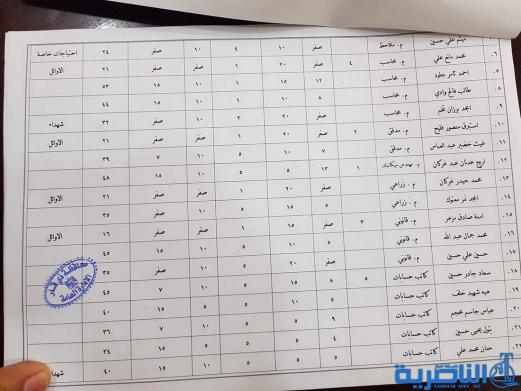 ميثم علي حسين م. ملاحظ صفر ١٠ ٤ ١٠ صفر ٢٤ احتياجات خاصة
٦. محمد مانع علي م. محاسب ٤ صفر ٢٠ ١ صفر صفر ٢١ الاوائل
٧. احمد ثامر م. محاسب ١٢ ١٥ ١ ١٠ ١٥ ٥٣
٨. طالب فالح وادي م. محاسب ٨ ١٠ ١ ١٠ ١٥ ٤٤
٩. امجد برزان م. محاسب صفر ٢٠ ٢ ١٠ صفر ٣٢ شهداء
١٠. استبرق منصور فليح م. مدقق ٢ صفر ٢٠ ١ صفر صفر ٢١ الاوائل
١١. غيث خضير عبد العباس م. مدقق ٧ ١٠ ٥ ١٠ ٧ ٣٩
١٢. اريج عدنان عبد م. مهندس ميكانيك ١ ١٣ ٥ ٥ ١٠ ١٥ ٤٨
١٣. محمد حيدر م. زراعي صفر ٢٠ ١ صفر صفر ٢١ الاوائل
١٤. امجد م. زراعي ٥ ١٥ ٥ ١٠ صفر ٣٥
١٥. امنة صادق مزهر م. قانوني ٣ صفر ١٥ ١ صفر صفر ١٦ الاوائل
١٦. محمد جمال عبد الله م. قانوني ٥ ١٠ ٥ ١٠ ١٥ ٤٥
١٧. حسين علي حسين م. قانوني ٥ ١٥ ٥ ١٠ صفر ٣٥
١٨. سعاد جادر حسين كاتب حسابات ٥ ٨ ١٥ ٥ ١٠ ٧ ٤٥
هبه شهيد خلف كاتب حسابات ٥ ١٠ ٥ ٥ ١٥ ٤٠
عباس جاسم كاتب حسابات ٩ ٥ ٥ ١٠ ٧ ٣٦
بتول يحيى حسين كاتب حسابات ٤ ٥ ٥ ١٠ ١٥
حنان محمد علي كاتب حسابات ٥ ٥ ٥ ١٠ ١٥ ٤٠ شهداء
محافظة ذي قار
الادارة العامة
الناصرية